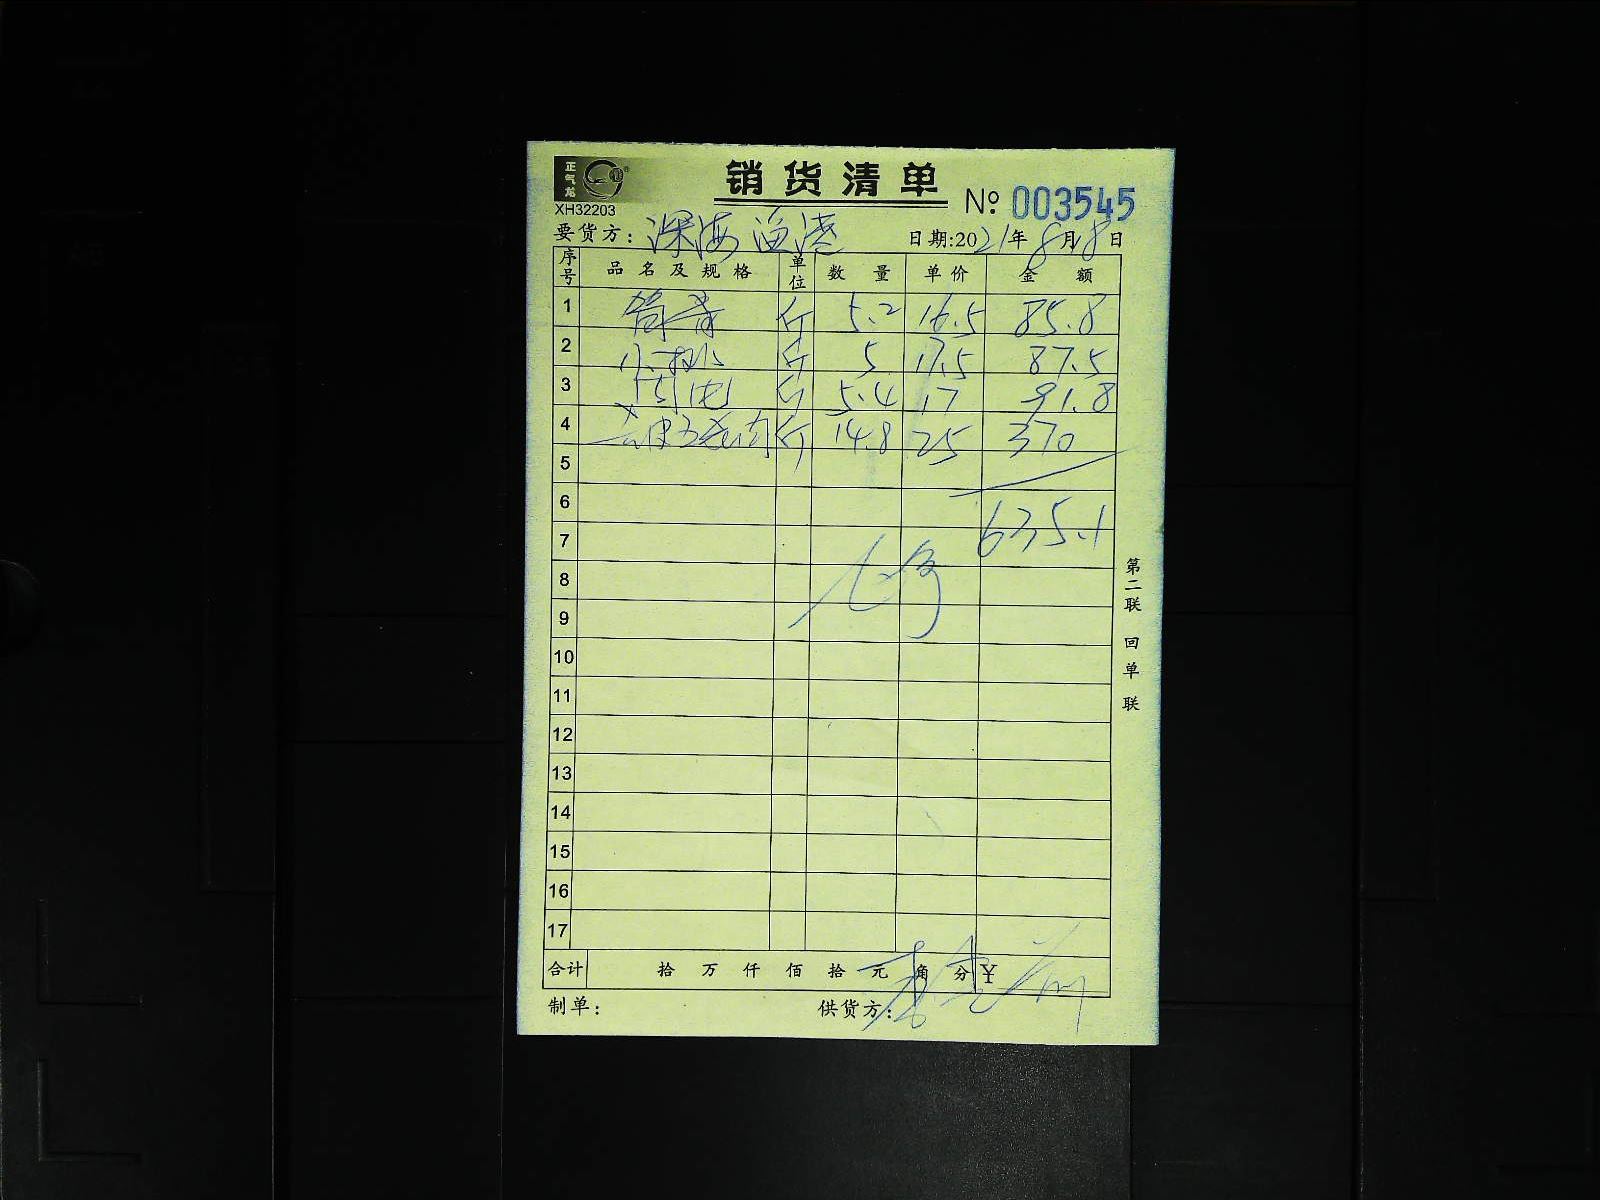 正气龙
销货清单
XH32203
№ 003545
要货方: 深海渔港 日期:2021年8月8日
序号 品名及规格 单位 数量 单价 金额
1 筒骨 斤 5.2 16.5 85.8
2 小排 斤 5 17.5 87.5
3 斤 5.4 17 91.8
4 去皮五花肉 斤 14.8 25 370
5
6 635.1
7
8
9
10
11
12
13
14
15
16
17
合计 拾万仟佰拾元角分 ¥
制单: 供货方:
第二联 回单联